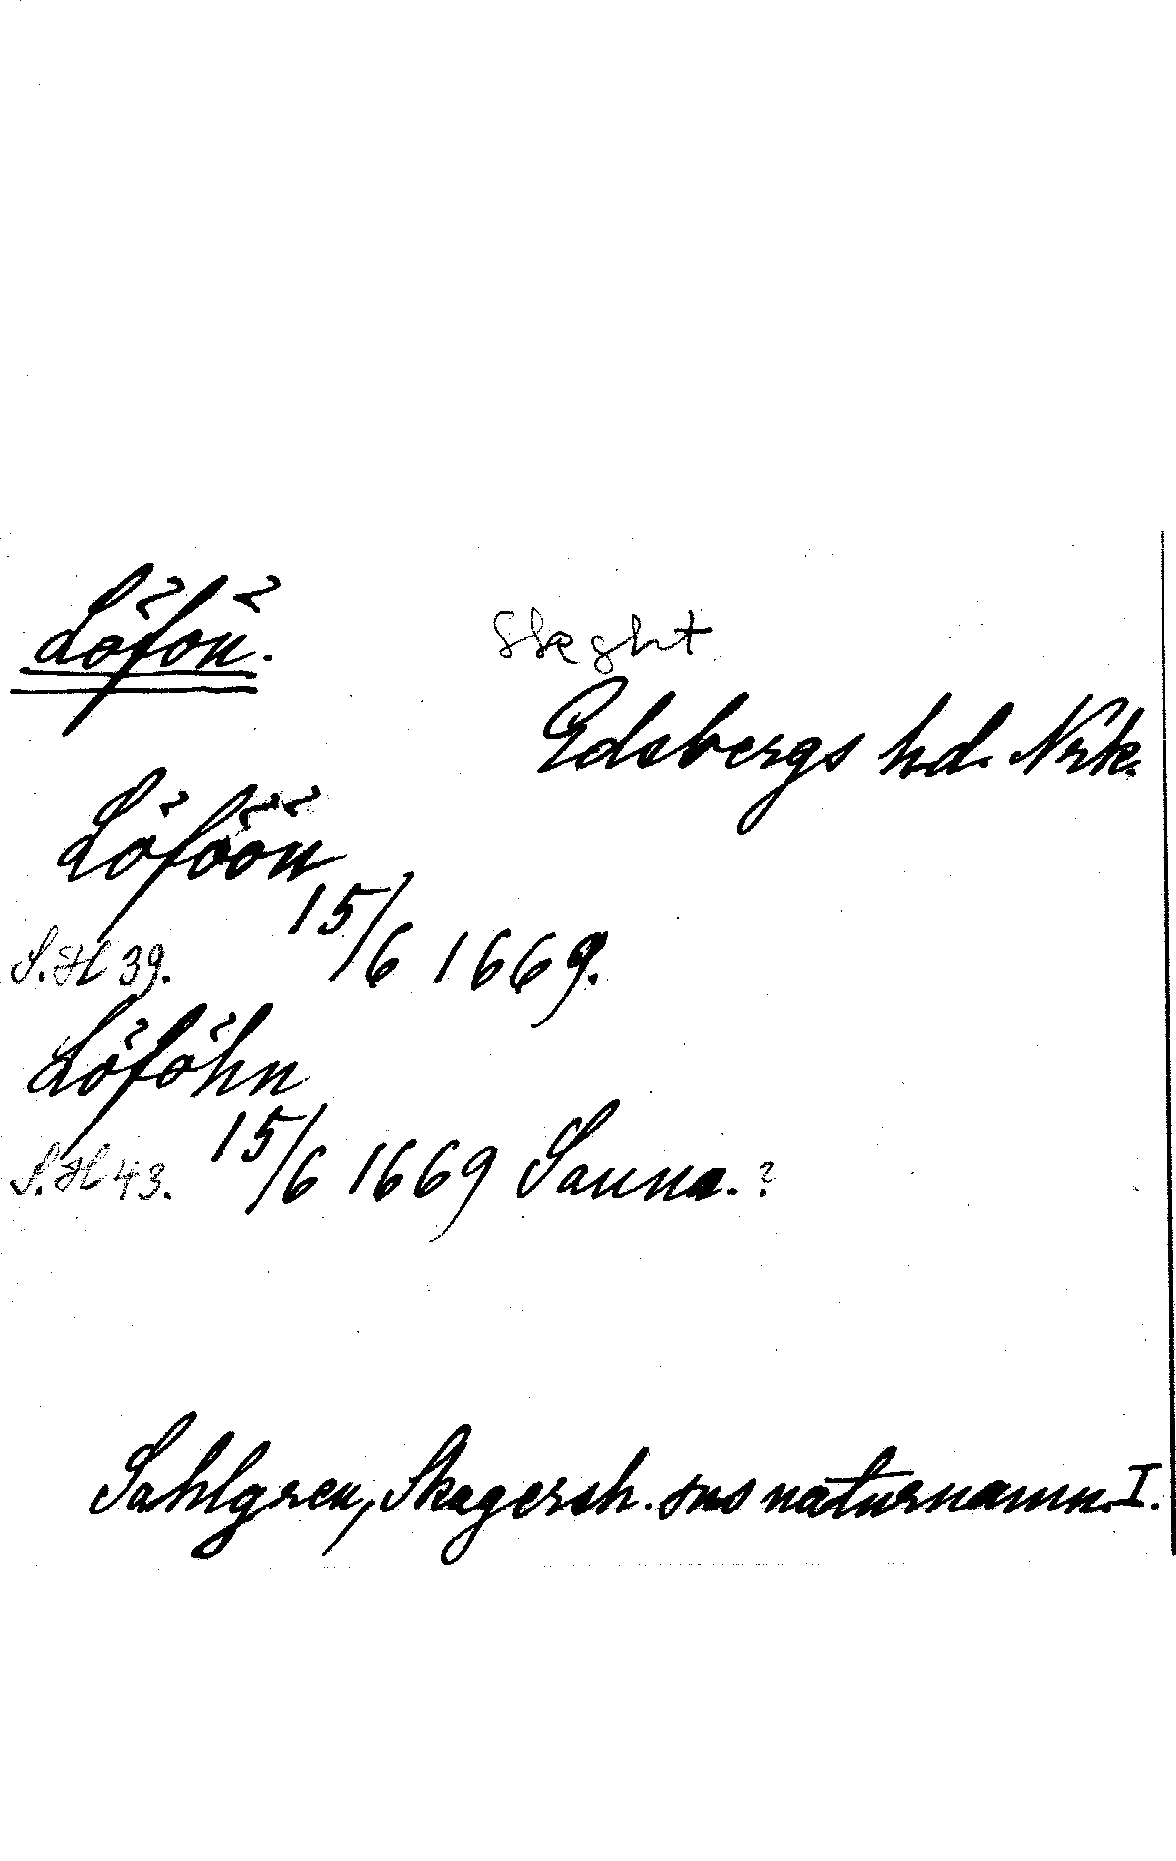 Löfön.
Skght
Edsbergs hd. Nrk.
Löföön
15/6 1669.
S.H 39.
Löföhn
15/6 1669 Sauna.?
S.H 43.
Sahlgren, Skagersh. sns naturnamn. I.